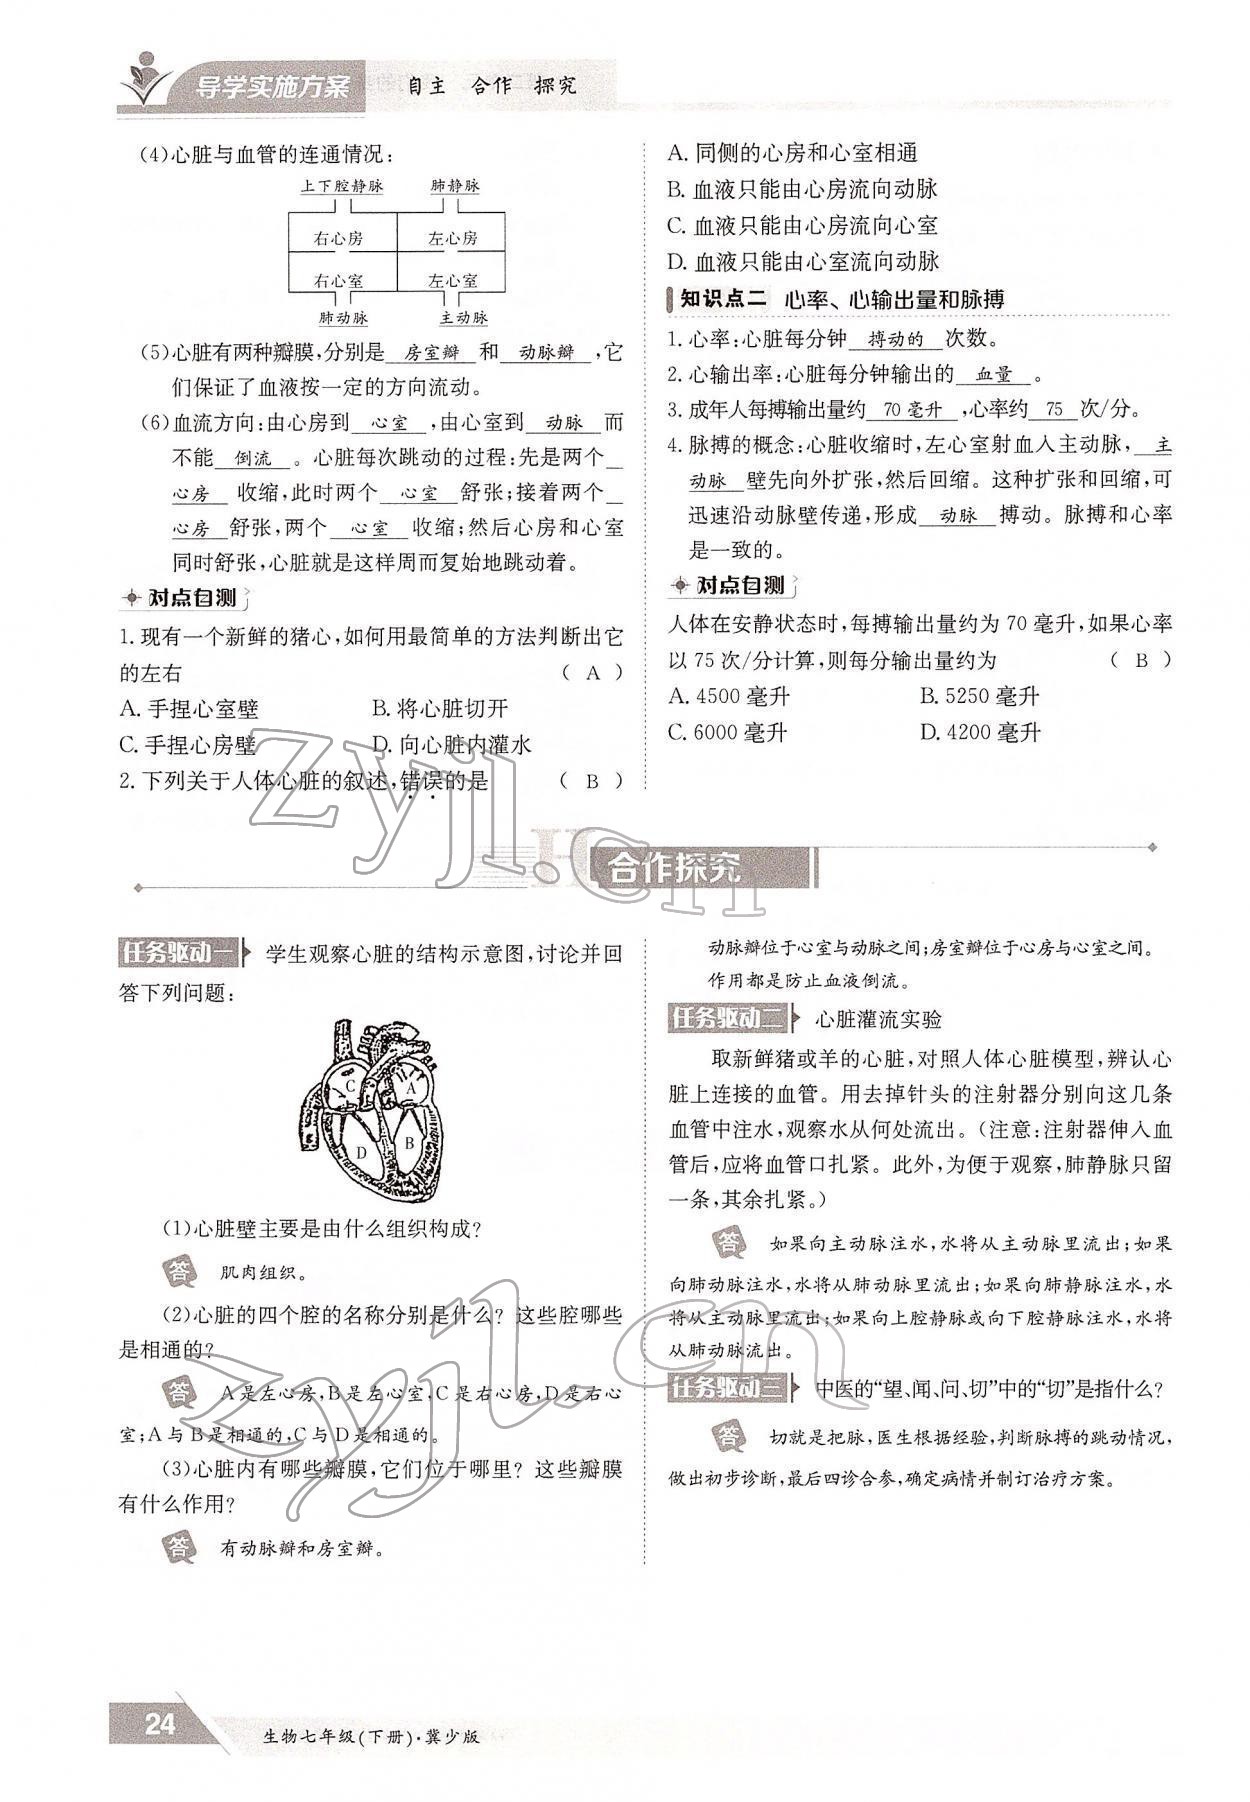 导学实施方案 自主 合作 探究
(4)心脏与血管的连通情况:
上下腔静脉 肺静脉
右心房 左心房
右心室 左心室
肺动脉 主动脉
(5)心脏有两种瓣膜,分别是 房室瓣 和 动脉瓣 ,它
们保证了血液按一定的方向流动。
(6)血流方向:由心房到 心室 ,由心室到 动脉 而
不能 倒流 。心脏每次跳动的过程:先是两个
心房 收缩,此时两个 心室 舒张;接着两个
心房 舒张,两个 心室 收缩;然后心房和心室
同时舒张,心脏就是这样周而复始地跳动着。
对点自测
1. 现有一个新鲜的猪心,如何用最简单的方法判断出它
的左右 ( A )
A. 手捏心室壁 B. 将心脏切开
C. 手捏心房壁 D. 向心脏内灌水
2. 下列关于人体心脏的叙述,错误的是 ( B )
A. 同侧的心房和心室相通
B. 血液只能由心房流向动脉
C. 血液只能由心房流向心室
D. 血液只能由心室流向动脉
知识点二 心率、心输出量和脉搏
1. 心率:心脏每分钟 搏动的 次数。
2. 心输出率:心脏每分钟输出的 血量 。
3. 成年人每搏输出量约 70 毫升 ,心率约 75 次/分。
4. 脉搏的概念:心脏收缩时,左心室射血人主动脉, 主
动脉 壁先向外扩张,然后回缩。这种扩张和回缩,可
迅速沿动脉壁传递,形成 动脉 搏动。脉搏和心率
是一致的。
对点自测
人体在安静状态时,每搏输出量约为 70 毫升,如果心率
以 75 次/分计算,则每分输出量约为 ( B )
A. 4500 毫升 B. 5250 毫升
C. 6000 毫升 D. 4200 毫升
H 合作探究
任务驱动一 学生观察心脏的结构示意图,讨论并回
答下列问题:
C A
D B
(1)心脏壁主要是由什么组织构成?
答 肌肉组织。
(2)心脏的四个腔的名称分别是什么?这些腔哪些
是相通的?
答 A是左心房,B是左心室,C是右心房,D是右心
室;A与B是相通的,C与D是相通的。
(3)心脏内有哪些瓣膜,它们位于哪里?这些瓣膜
有什么作用?
答 有动脉瓣和房室瓣。
动脉瓣位于心室与动脉之间;房室瓣位于心房与心室之间。
作用都是防止血液倒流。
任务驱动二 心脏灌流实验
取新鲜猪或羊的心脏,对照人体心脏模型,辨认心
脏上连接的血管。用去掉针头的注射器分别向这几条
血管中注水,观察水从何处流出。(注意:注射器伸人血
管后,应将血管口扎紧。此外,为便于观察,肺静脉只留
一条,其余扎紧。)
答 如果向主动脉注水,水将从主动脉里流出;如果
向肺动脉注水,水将从肺动脉里流出;如果向肺静脉注水,水
将从主动脉里流出;如果向上腔静脉或向下腔静脉注水,水将
从肺动脉流出。
任务驱动三 中医的“望、闻、问、切”中的“切”是指什么?
答 切就是把脉,医生根据经验,判断脉搏的跳动情况,
做出初步诊断,最后四诊合参,确定病情并制订治疗方案。
24 生物七年级(下册)·冀少版
zyjl.cn
zyjl.cn